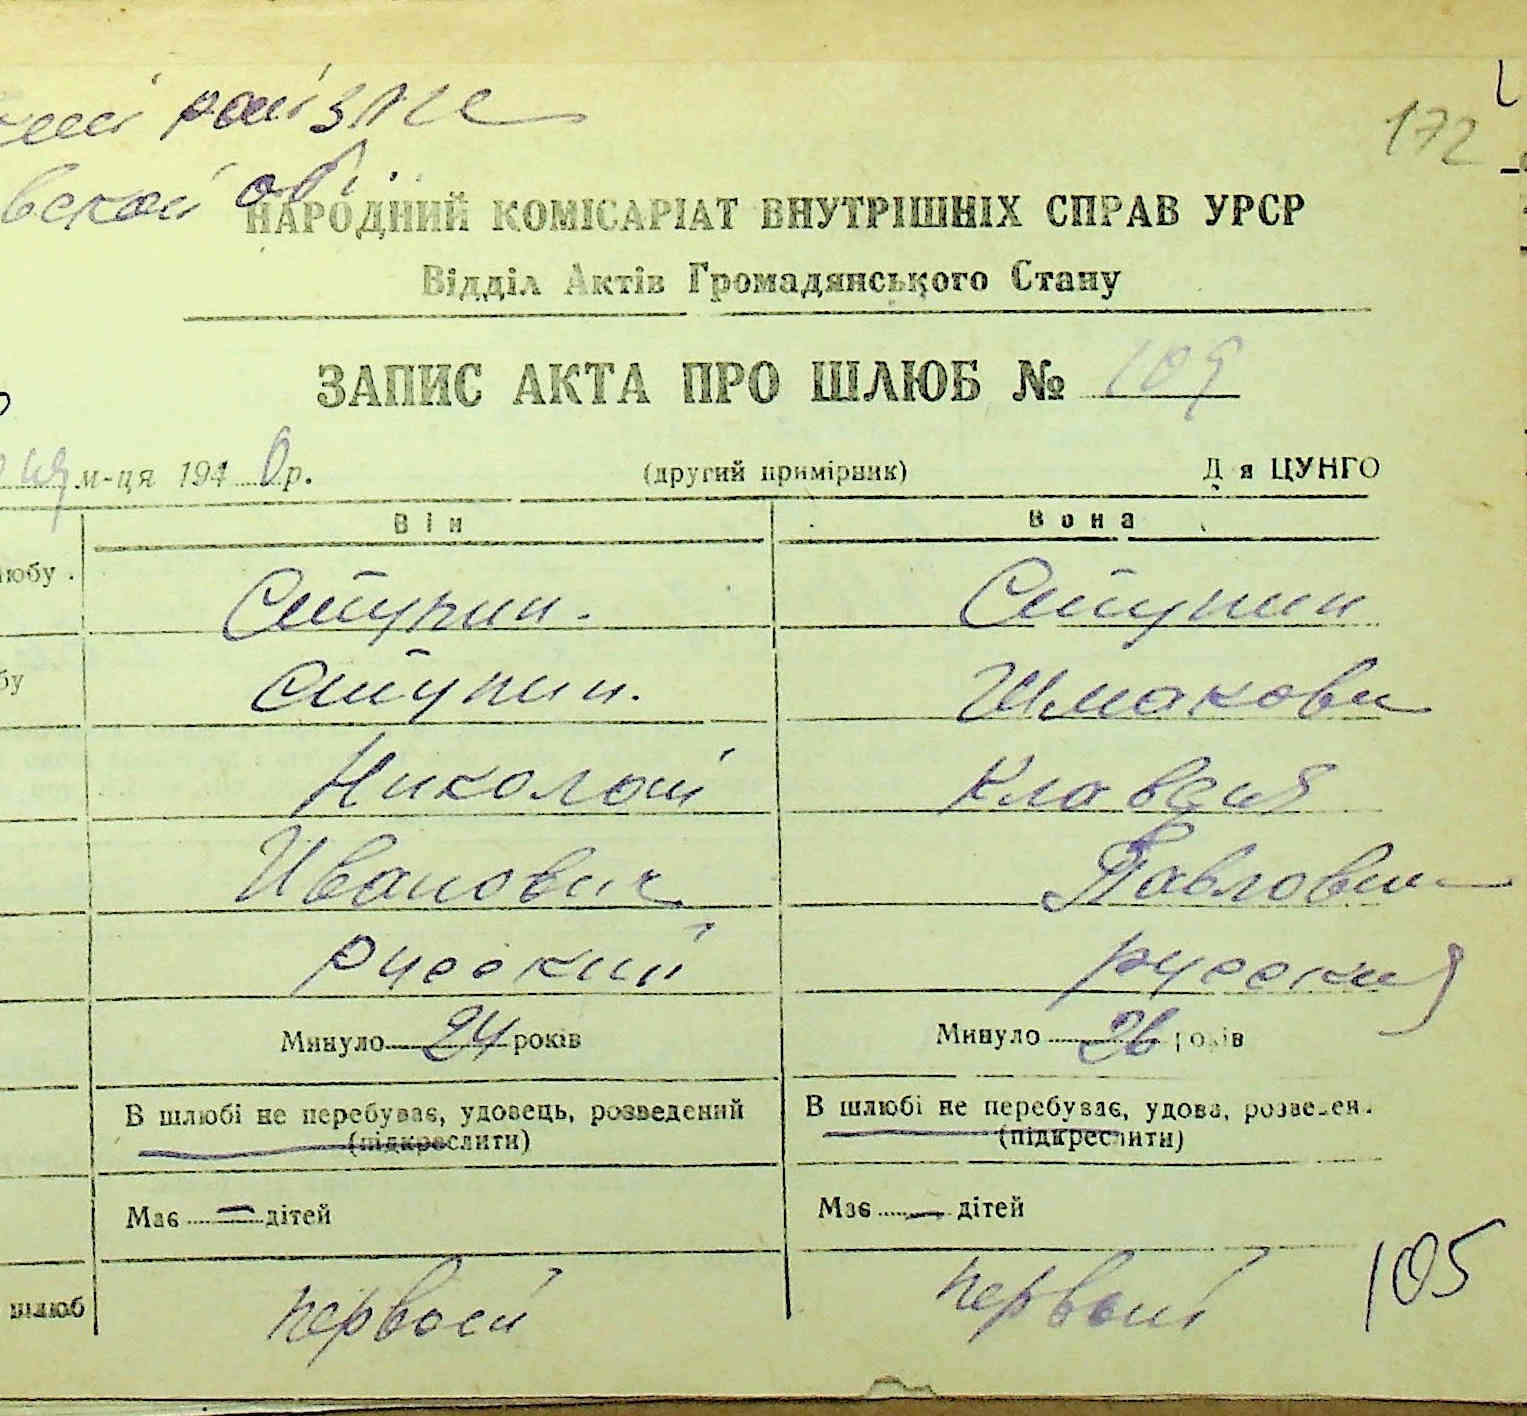 172
обл.
НАРОДНИЙ КОМІСАРІАТ ВНУТРІШНІХ СПРАВ УРСР
Відділ Актів Громадянського Стану
ЗАПИС АКТА ПРО ШЛЮБ № 109
м-ця 1940 р. (другий примірник) Для ЦУНГО
Він Вона
Ступин. Ступин
Ступин. Шмакова
Николай Клавдия
Иванович Павловна
русский русская
Минуло 24 років Минуло 26 років
В шлюбі не перебуває, удовець, розведений В шлюбі не перебуває, удова, розведен.
(підкреслити) (підкреслити)
Має — дітей Має — дітей
шлюб первый первый
105